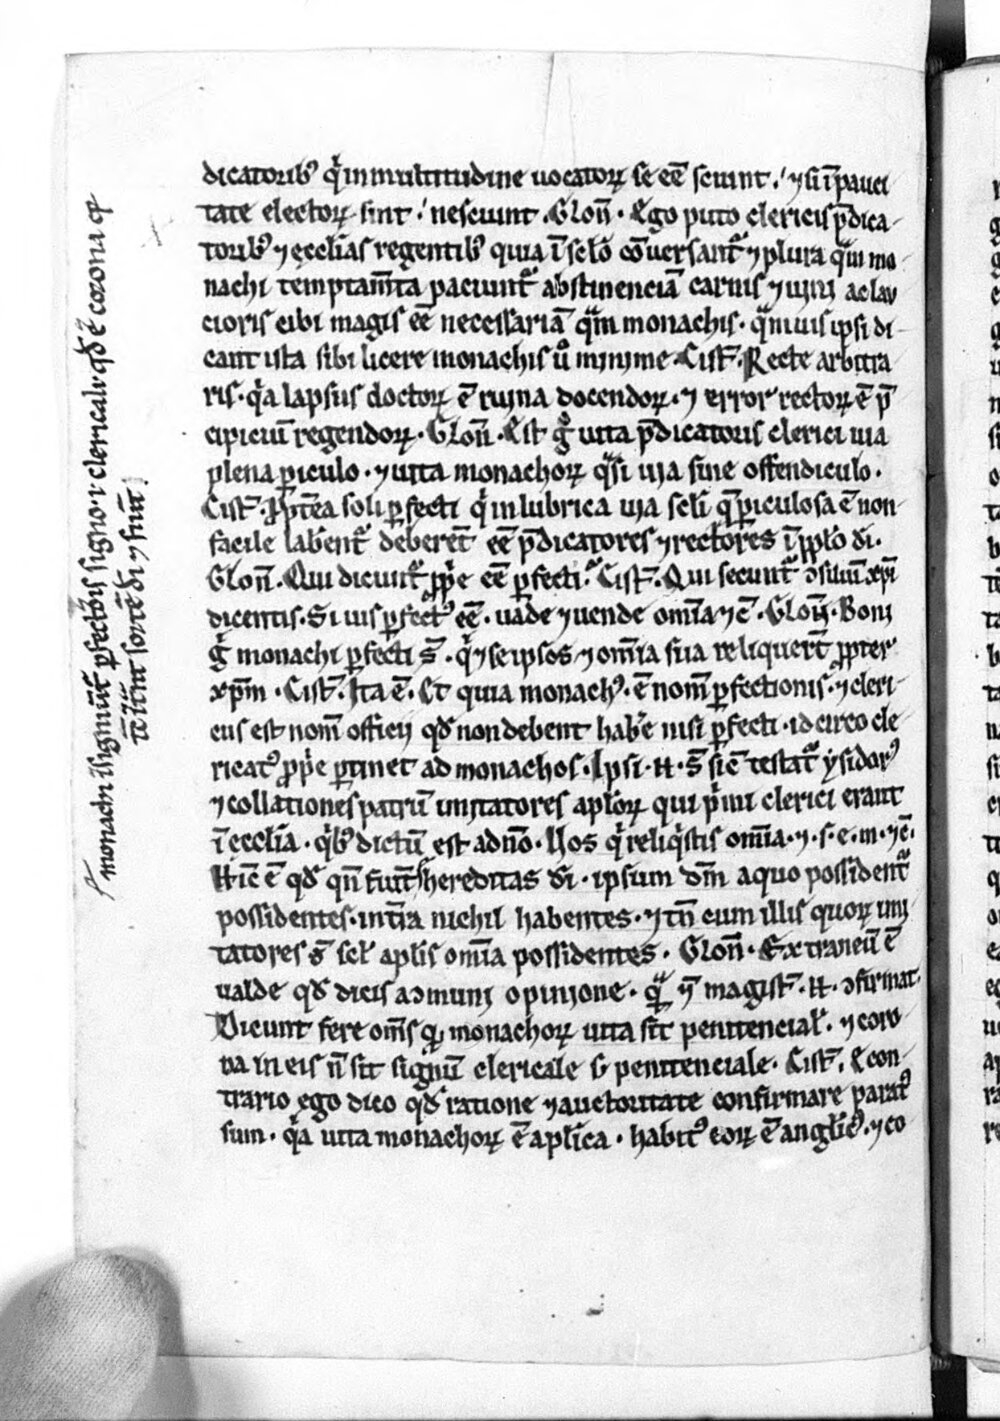 dicatoribꝰ qͥ in multitudine uocatoꝝ se eē sciunt. ⁊ si ī pauci
tate electoꝝ sint nesciunt. Glon̄. Ego puto clericis p̄dica
toribꝰ ⁊ ecclīas regentibꝰ quia ī sclō cōuersant᷑ ⁊ plura qͣm mo
nachi temptam̄ta paciunt᷑ abstinenciā carnis ⁊ uini ac lau
cioris cibi magis eē necessariā qͣm monachis. qͣmuis ipsi di
cant ista sibi licere monachis u̾o minime. Cist̄. Recte arbitra
ris. qͥa lapsus doctoꝝ ē ruina docendoꝝ. ⁊ error rectoꝝ ē p̄
cipiciū regendoꝝ. Glon̄. Est gͦ uita p̄dicatoris clerici uia
plena ꝑiculo. ⁊ uita monachoꝝ qͣsi uia sine offendiculo.
Cist̄. P̄pt̄ea soli ꝑfecti qͥ in lubrica uia scl̄i q̄ ꝑiculosa ē non
facile labent᷑ deberēt eē p̄dicatores ⁊ rectores ī pp̄lo di.
Glon̄. Qui dicunt᷑ ꝓp̄e eē ꝑfecti. Cist̄. Qui secunt᷑ ↄsiliū xp̄i
dicentis. Si uis ꝑfectꝰ eē. uade ⁊ uende om̄ia ⁊ c̄. Glon̄. Boni
gͦ monachi ꝑfecti s̄. qͥ ⁊ se ipsos ⁊ om̄ia sua reliquerūt ꝓpter
xp̄m. Cist̄. Ita ē. Et quia monachꝰ. ē nom̄ ꝑfectionis. ⁊ cleri
cus est nom̄ officij qd̄ non debent hab̄e nisi ꝑfecti. idcirco cle
ricatꝰ ꝓp̄e ꝑtinet ad monachos. Ipsi .n. s̄ sic̄ testat᷑ ysidorꝰ
⁊ collationes patrū imitatores apl̄oꝝ qui pͥmi clerici erant
ī ecclīa. qͥbꝰ dictū est a dn̄o. Uos qͥ reliqͥstis om̄ia. ⁊. s. e. m. ⁊ c̄.
possidentes. int̄ia nichil habentes. ⁊ tn̄ cum illis quoꝝ imi
tatores s̄ scl̄ apl̄is om̄ia possidentes. Glon̄. Extraneū ē
ualde qd̄ dicis a ↄmuni opinione. magist̄ .n. ↄfirmat.
Dicunt fere om̄s qꝫ monachoꝝ uita sit penitencial̄. ⁊ coro
na in eis n̄ sit signū clericale s̄ penitenciale. Cist̄. E con
trario ego dico qd̄ ratione ⁊ auctoritate confirmare paratꝰ
sum. qͥa uita monachoꝝ ē apl̄ica. habitꝰ eoꝝ ē anglicꝰ. ⁊ co
monachi ꝑfectōis signo. ⁊ clericali. qd̄ ē corona